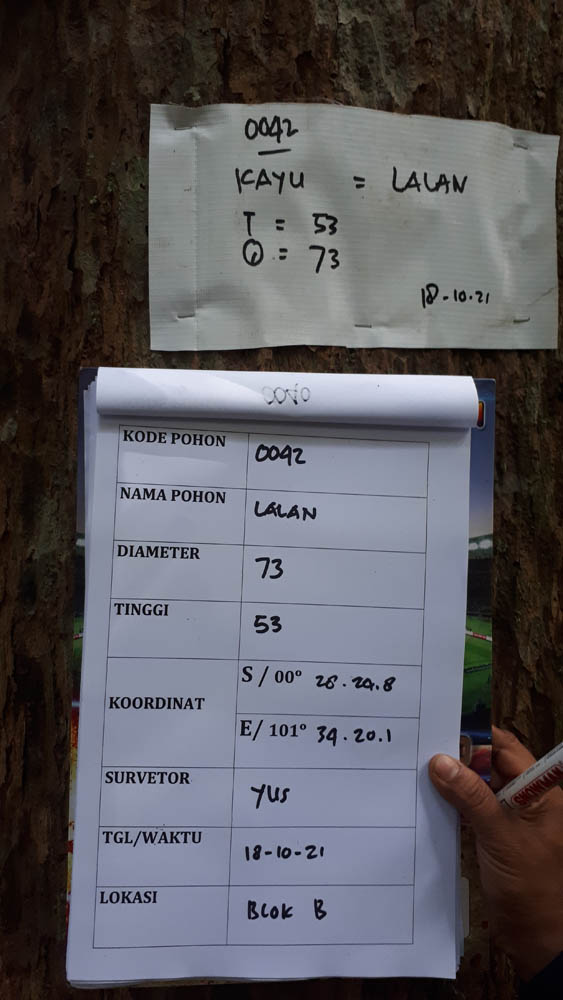 0042
KAYU = LALAN
T = 53
Ø = 73
18-10-21
KODE POHON 0042
NAMA POHON LALAN
DIAMETER 73
TINGGI 53
KOORDINAT
S / 00° 28.24.8
E/ 101° 34.20.1
SURVETOR YUS
TGL/WAKTU 18-10-21
LOKASI BLOK B
SNOWMAN